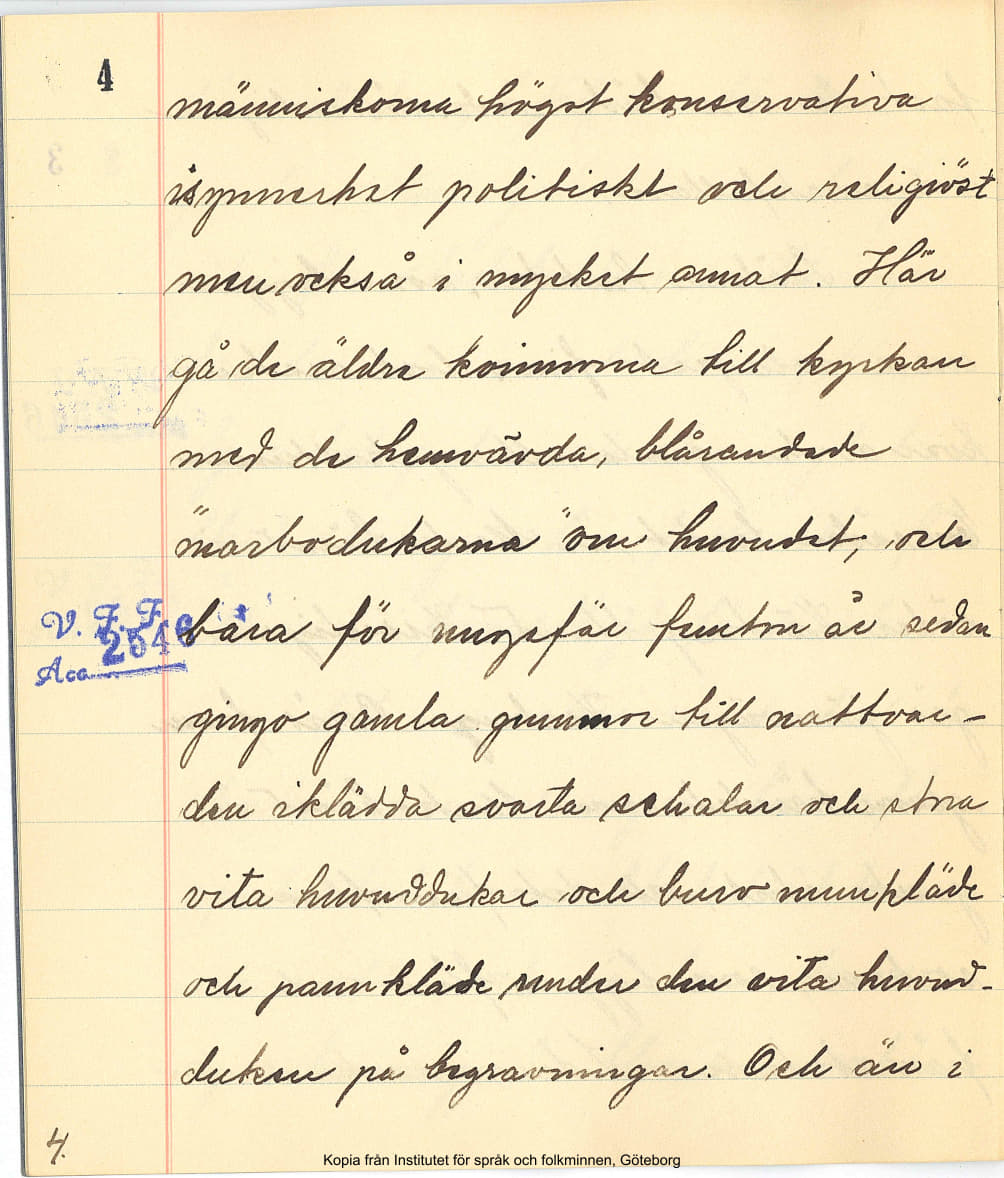 4
människorna högst konservativa
isynnerhet politiskt och religiöst
men också i mycket annat. Här
gå de äldre kvinnorna till kyrkan
med de hemvävda, blårandade
"marbodukarna" om huvudet, och
V. F. F. bara för ungefär femton år sedan
Acc. 2546
gingo gamla gummor till nattvar-
den iklädda svarta schalar och stora
vita huvuddukar och buro munkläde
och pannkläde under den vita huvud-
duken på begravningar. Och än i
4.
Kopia från Institutet för språk och folkminnen, Göteborg